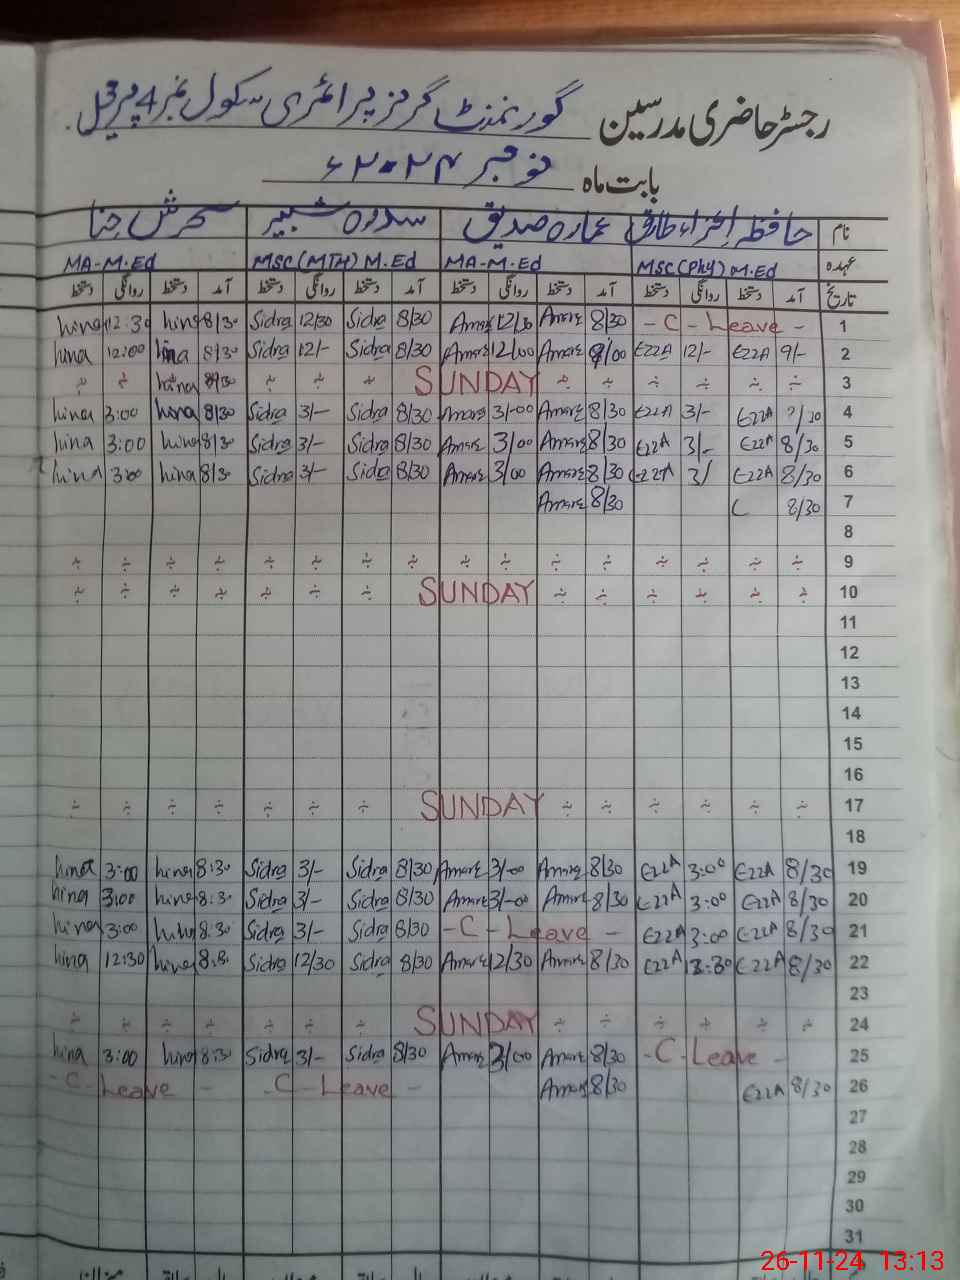 رجسٹر حاضری مدرسین گورنمنٹ گرلز پرائمری سکول نمبر 4
بابت ماہ نومبر ۲۰۲۴ء
نام حافظہ اقراء طارق عمارہ صدیق سدرہ شبیر سحرش حنا
عہدہ MSC(Phy) M.Ed MA-M.Ed MSC(MTH) M.Ed MA-M.Ed
تاریخ آمد دستخط روانگی دستخط آمد دستخط روانگی دستخط آمد دستخط روانگی دستخط آمد دستخط روانگی دستخط
hina 12:30 hina 8/30 Sidra 12/30 Sidra 8/30 Amara 12/30 Amara 8/30 - C - Leave - 1
hina 12:00 hina 8/30 Sidra 12/- Sidra 8/30 Amara 12/00 Amara 8/00 EZZA 12/- EZZA 9/- 2
hina 8/30 SUNDAY 3
hina 3:00 hina 8/30 Sidra 3/- Sidra 8/30 Amara 3/-00 Amara 8/30 EZZA 3/- EZZA /30 4
hina 3:00 hina 8/30 Sidra 3/- Sidra 8/30 Amara 3/00 Amara 8/30 EZZA 3/- EZZA 8/30 5
hina 3:00 hina 8/30 Sidra 3/- Sidra 8/30 Amara 3/00 Amara 8/30 EZZA 3/ EZZA 8/30 6
Amara 8/30 8/30 7
8
9
SUNDAY 10
11
12
13
14
15
16
SUNDAY 17
18
hina 3:00 hina 8:30 Sidra 3/- Sidra 8/30 Amara 3/-00 Amara 8/30 EZZA 3:00 EZZA 8/30 19
hina 3:00 hina 8:30 Sidra 3/- Sidra 8/30 Amara 3/-00 Amara 8/30 EZZA 3:00 EZZA 8/30 20
hina 3:00 hina 8:30 Sidra 3/- Sidra 8/30 - C - Leave - EZZA 3:00 EZZA 8/30 21
hina 12:30 hina 8:3 Sidra 12/30 Sidra 8/30 Amara 12/30 Amara 8/30 EZZA 12:30 EZZA 8/30 22
23
SUNDAY 24
hina 3:00 hina 8:30 Sidra 3/- Sidra 8/30 Amara 3/00 Amara 8/30 - C - Leave - 25
- C - Leave - - C - Leave - Amara 8/30 EZZA 8/30 26
27
28
29
30
31
26-11-24 13:13